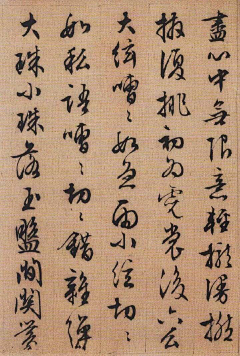 盡心中無限意輕攏漫撚
抹復挑初為霓裳後六么
大絃嘈〻如急雨小絃切〻
如私語嘈〻切〻錯雜彈
大珠小珠落玉盤間關鶯